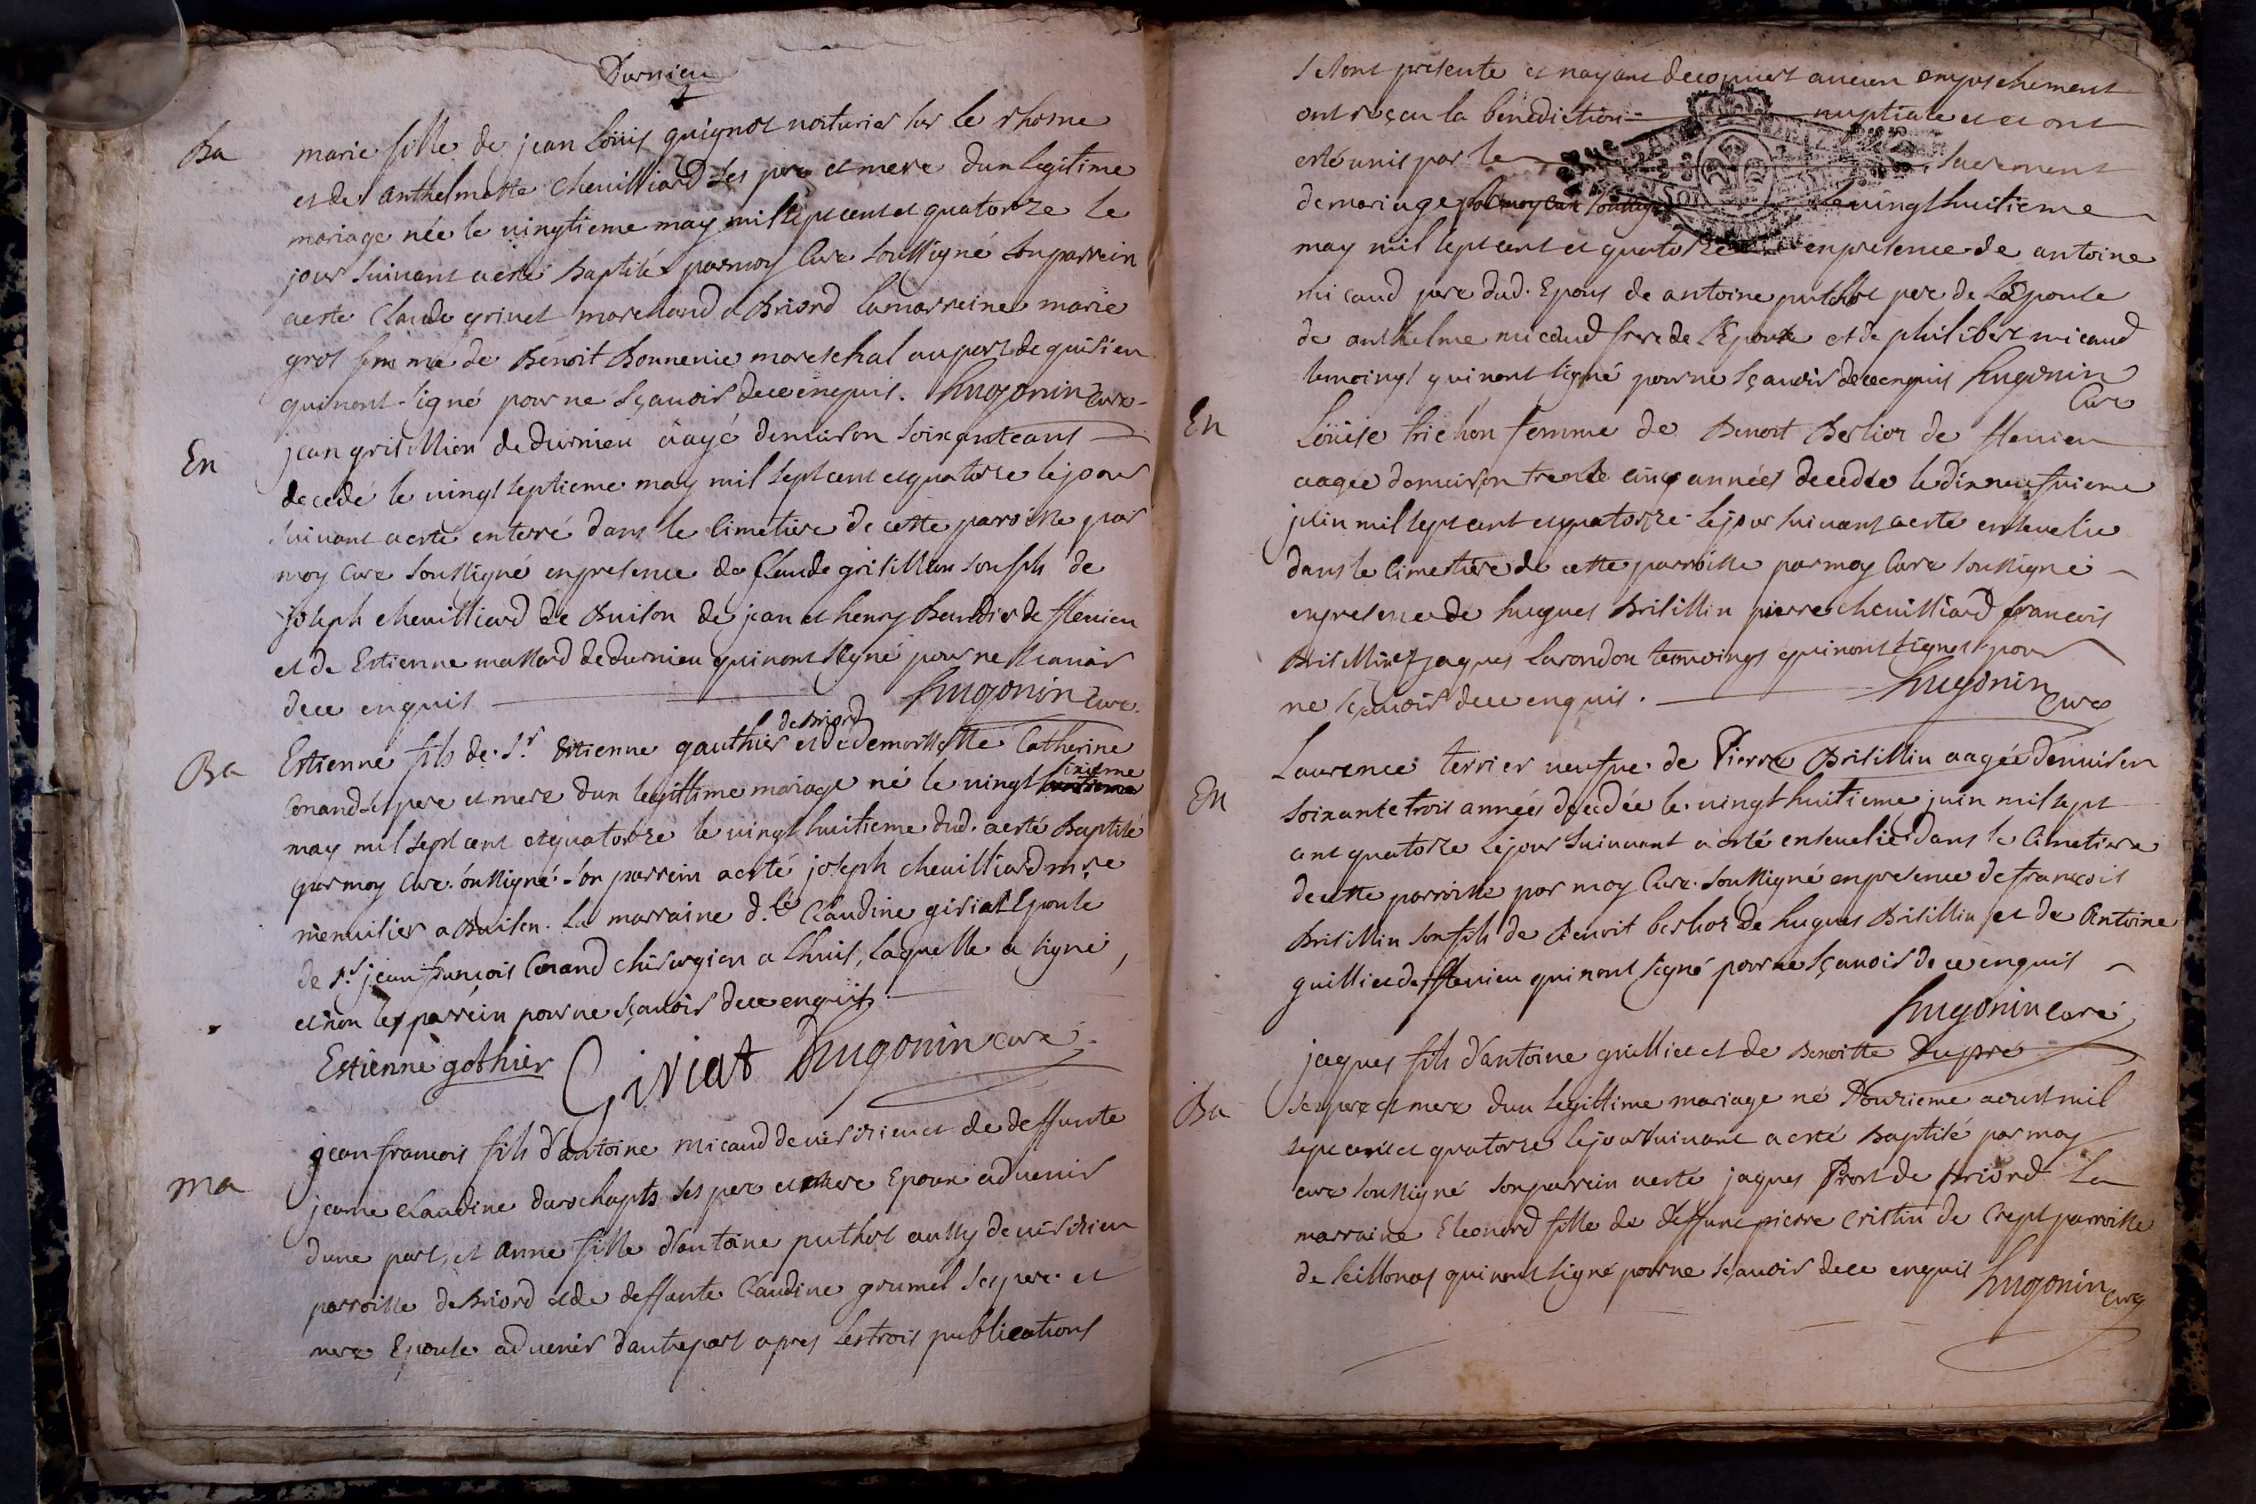 Durnieu
Ba
marie fille de jean Loüis quignot voiturier sur le rhosne
et de anthelmette cheuilliard ses pere et mere dun legitime
mariage née le vingtieme may mil sept cent et quatorze le
jour suiuant a esté baptisé par moy curé soussigné son parrein
a esté Claude griuet marchand a Briord la marreine marie
grol femme de Benoit Bonnenie mareschal au port de quirieu
qui nont signé pour ne sçauoir de ce enquis. hugonin curé
En
jean grisillion de durnieu aagé denuiron soixante ans
decedé le vingt septieme may mil sept cent et quatorze le jour
suiuant a esté enterré dans le cimetiere de cette parroisse par
moy curé soussigné en presence de Claude grisillion son fils de
joseph cheuilliard de Buison de jean et henry Beurdier de flenieu
et de Estienne mallard de durnieu qui nont signé pour ne scauoir
de ce enquis hugonin curé
Ba
de Briord
Estienne fils de Sr Estienne gauthier et de demoiselle Catherine
sixieme
Conand ses pere et mere dun legittime mariage né le vingt huitieme
may mil sept cent et quatorze le vingt huitieme dud. a esté Baptisé
par moy curé soussigné son parrein a esté joseph cheuilliard mre
menuisier a Buison. La marraine d.lle Claudine giriat Epouse
de Sr jean francois Conand chirurgien a Lhuis, laquelle a signé,
et non le parrein pour ne sçauoir de ce enquis
Estienne gothier Giriat hugonin curé
ma
jean francois fils d'antoine micaud de uerizieu et de deffunte
jeanne claudine durochapts ses pere et mere Epoux aduenir
dune part, et anne fille d'antoine puthot aussy de uerizieu
parroisse de Briord et de deffunte Claudine grumel ses pere et
mere Epouse aduenir dautre part apres les trois publications
setont presente et nayant decouuert aucun empeschement
ont reçeu la benediction nuptiale et ont
esté unis par le sacrement
de mariage par moy curé soussigné le vingt huitieme
may mil sept cent et quatorze en presence de antoine
micaud pere dud. Epous de antoine puthot pere de Lepouse
de anthelme micaud frere de l'Epoux et de philibert micaud
temoings qui nont signé pour ne sçauoir de ce enquis hugonin
curé
En
Loüise trichon femme de Benoit Berlior de flenieu
aagée denuiron trente cinq années decedée le dixneufuieme
juin mil sept cent et quatorze le jour suiuant a esté enseuelie
dans le cimetiere de cette parroisse par moy curé soussigné
en presence de hugues Brisillin pierre cheuilliard francois
Brisillin et jaques Larondon temoings qui nont signes pour
ne sçauoir de ce enquis. hugonin curé
En
Laurence terrier ueufue de Pierre Brisillin aagée denuiron
soixante trois années decedée le vingt huitieme juin mil sept
cent quatorze le jour suiuant a esté enseuelie dans le cimetiere
de cette parroisse par moy curé soussigné en presence de francois
Brisillin son fils de Benoit berlior de hugues Brisillin et de Antoine
guilliet de flenieu qui nont signé pour ne sçauoir de ce enquis
hugonin curé
Ba
jaques fils d'antoine guilliet et de Benoitte Dupré
ses pere et mere dun legittime mariage né Douzieme aoust mil
sept cent et quatorze le jour suiuant a esté Baptisé par moy
curé soussigné son parrein a esté jaques Prost de Briord La
marraine Eleonord fille de deffunt pierre Cristin de Crept parroisse
de Seillonas qui nont signé pour ne sçauoir de ce enquis hugonin curé